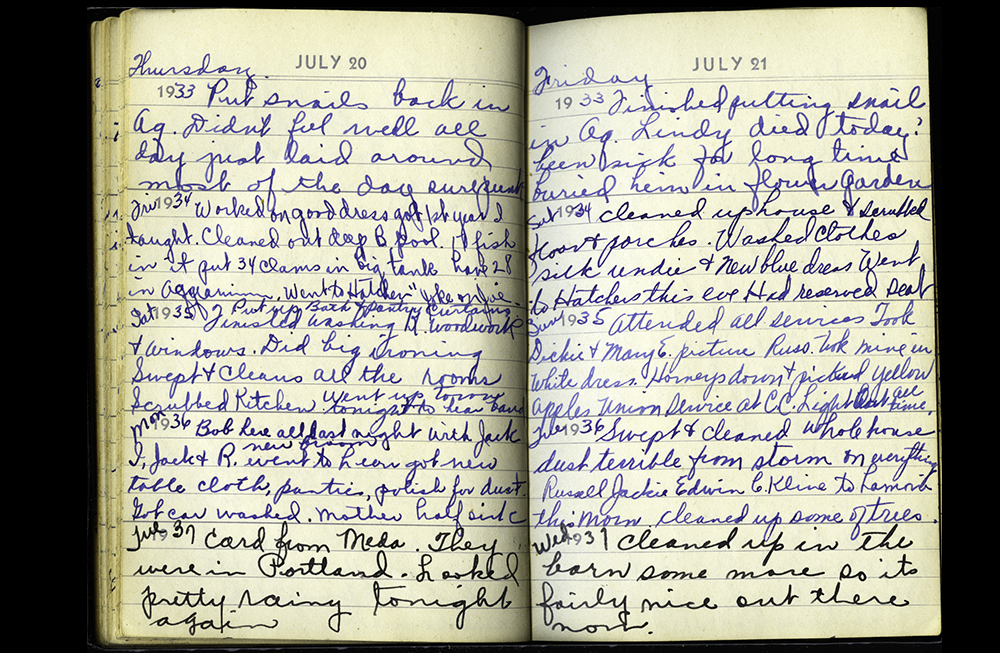 JULY 20
Thursday.
1933 Put snails back in
Aq. Didn't feel well all
day just laid around
most of the day
Fri 1934 Worked on good dress got 1st year I
taught. Cleaned out B. pool. 17 fish
in it put 34 clams in big tank have 28
in Aquarium. Went to Hatchers "Joke on
Sat 1935 Put up Bath & Pantry Curtains
Finished washing K. woodwork
& windows. Did big ironing
Swept & Cleans all the rooms
Scrubbed Kitchen went up
tonight to hear band
Mon 1936 Bob here all last night with Jack
new broom
I, Jack & R. went to got new
table cloth, panties, polish for dust.
Got car washed. Mother half sick
1937 Card from Meda. They
were in Portland. Looked
pretty rainy tonight
again
JULY 21
Friday
1933 Finished putting snail
in Aq. Lindy died today!
been sick for long time
buried him in flower garden
Sat 1934 cleaned up house & scrubbed
floor & porches. Washed Clothes
silk undie & New blue dress Went
to Hatchers this eve Had reserved seat
Sun 1935 Attended all services Took
Dickie & Mary E. picture Russ. took mine in
White dress. Horneys down & picked yellow
apples Union Service at C.C. Light Out all
time.
Tue 1936 Swept & cleaned whole house
dust terrible from storm on everything
Russell Jackie Edwin C. Kline to Lamoni
this morn cleaned up some of trees.
Wed 1937 Cleaned up in the
barn some more so its
fairly nice out there
now.